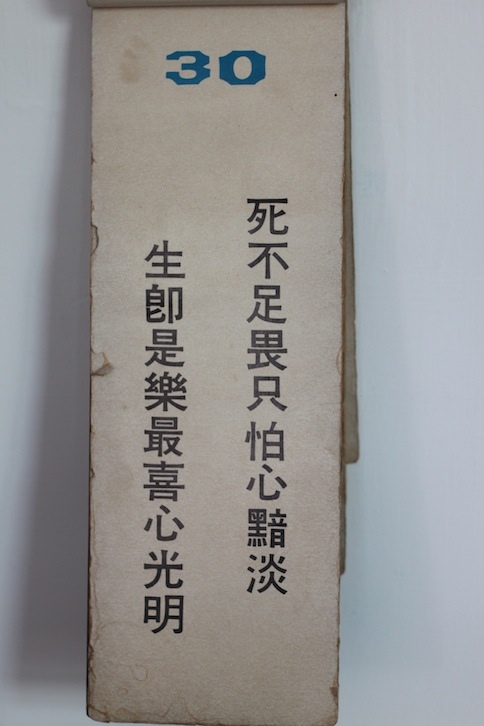 30
死不足畏只怕心黯淡
生卽是樂最喜心光明